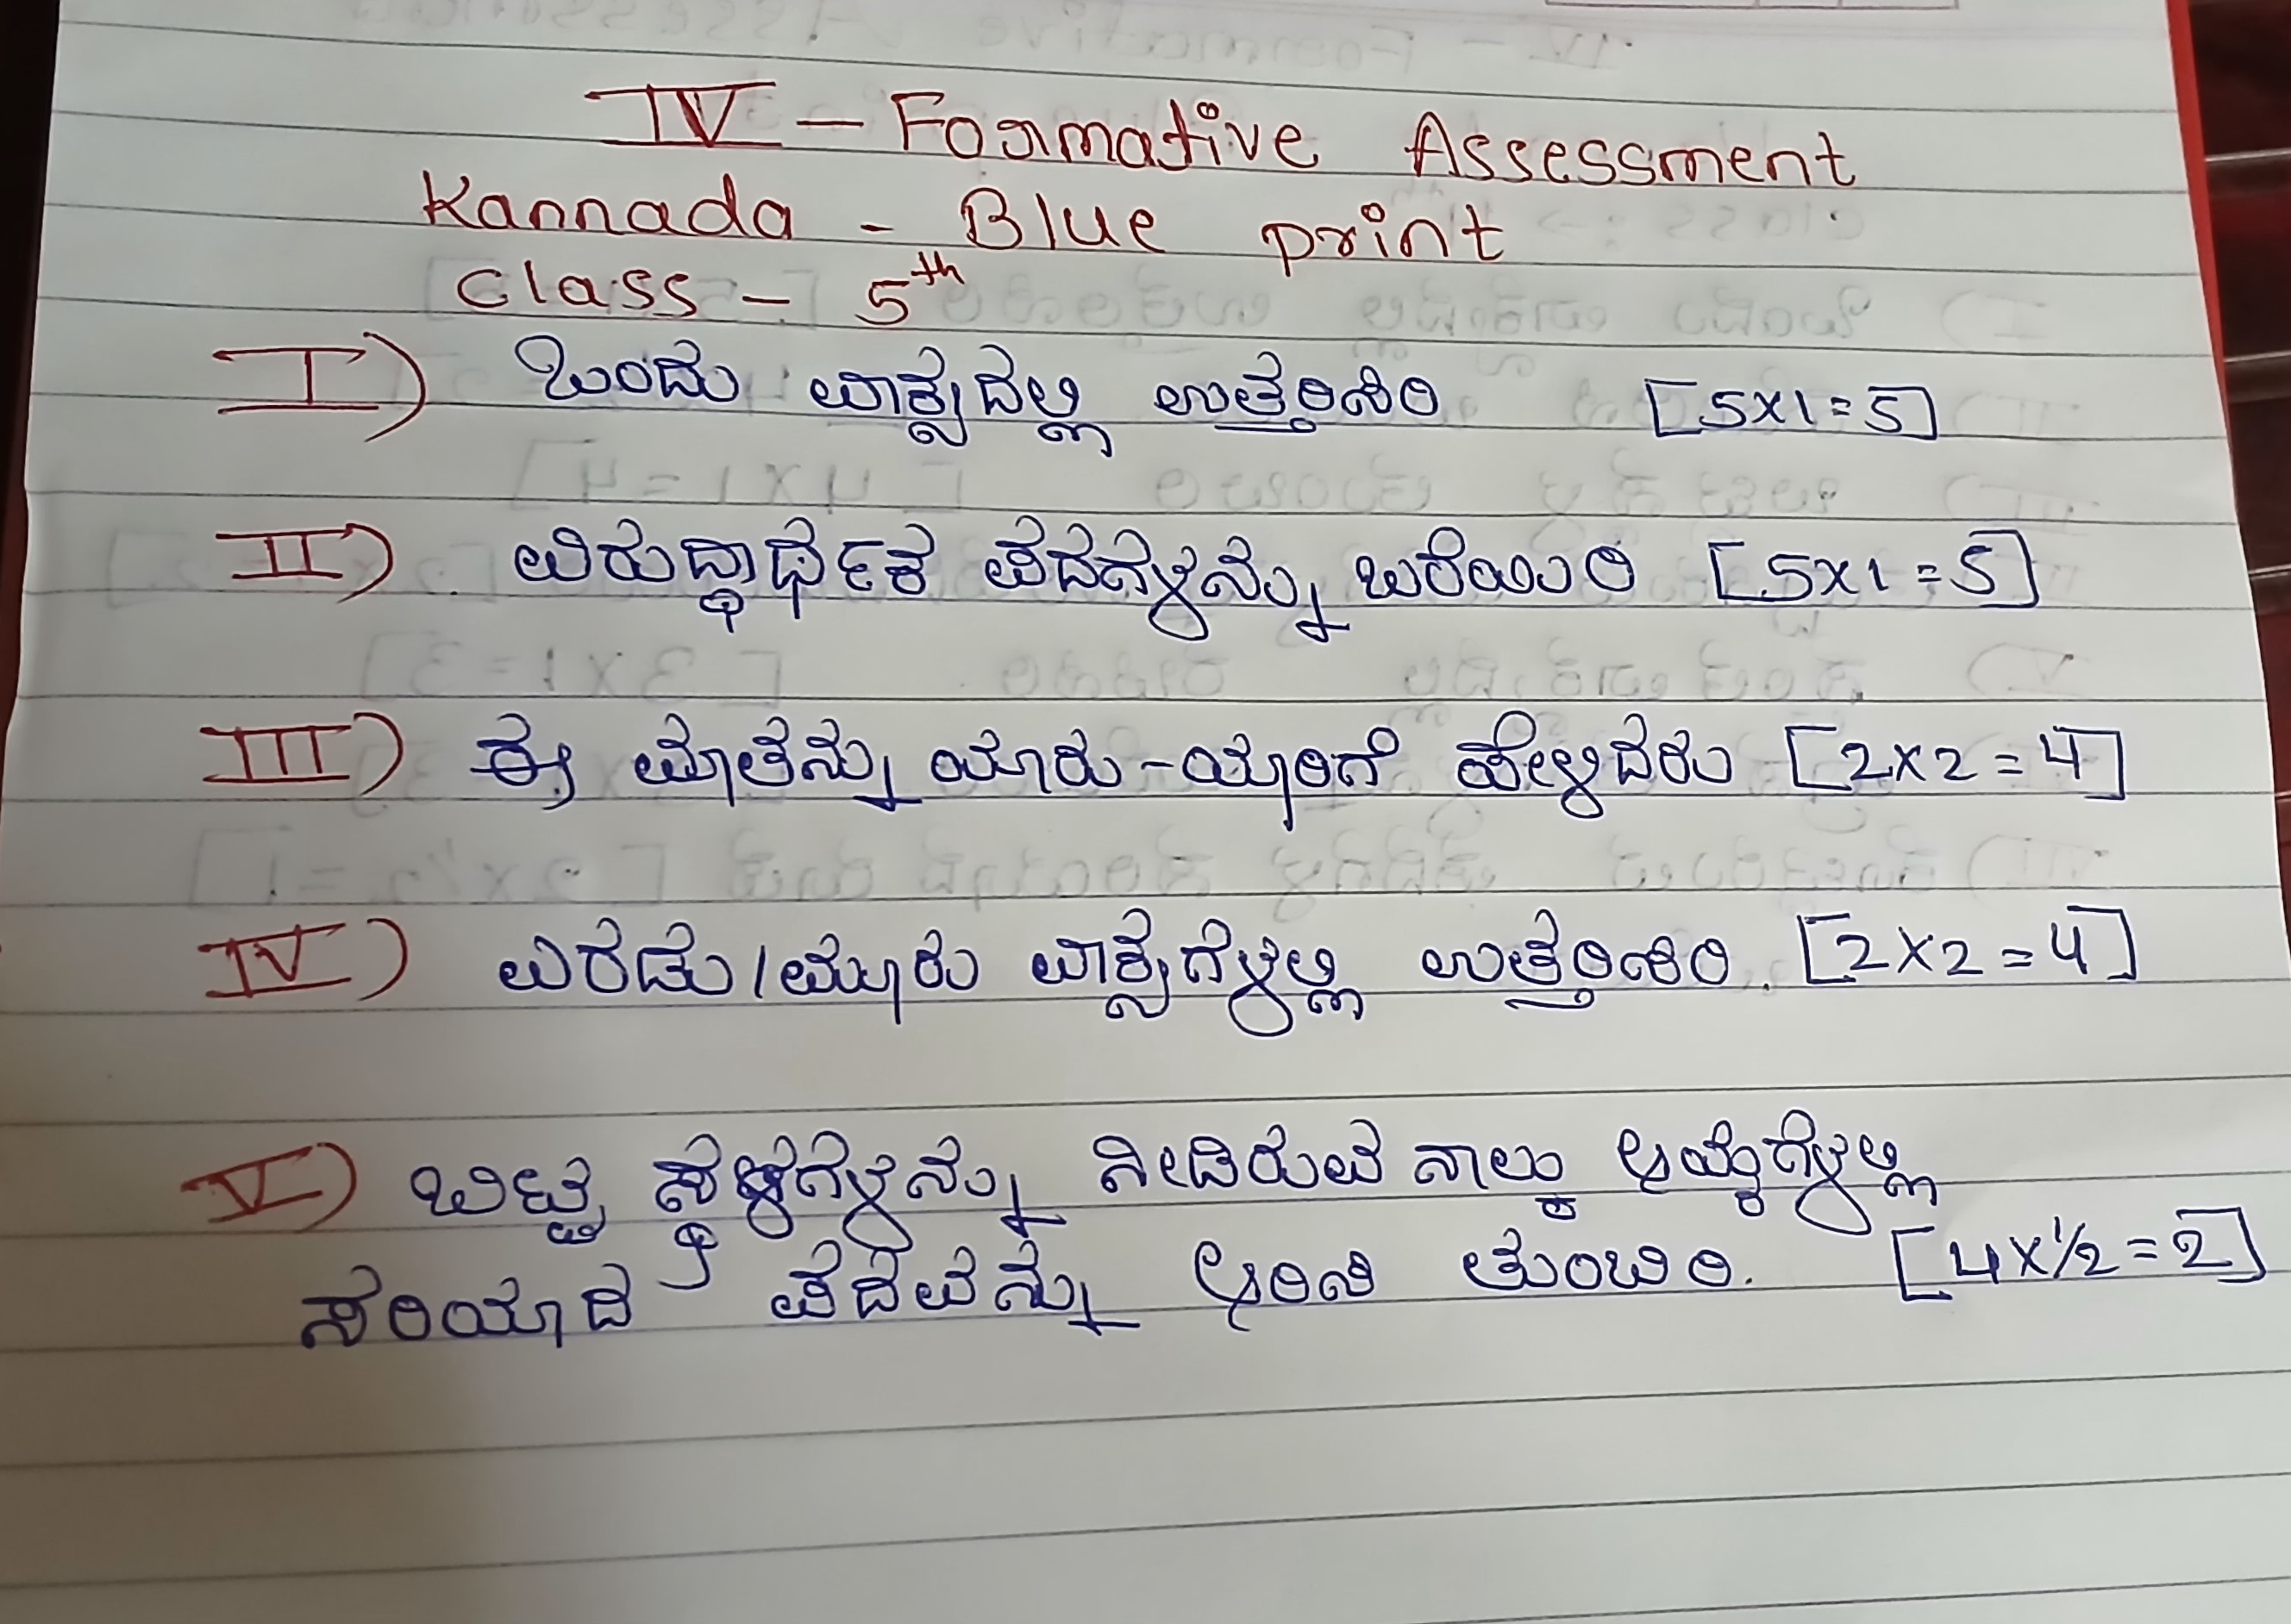 IV - Formative Assessment
Kannada - Blue print
class - 5th
I) ಒಂದು ವಾಕ್ಯದಲ್ಲಿ ಉತ್ತರಿಸಿರಿ [5x1=5]
II) ವಿರುದ್ಧಾರ್ಥಕ ಪದಗಳನ್ನು ಬರೆಯಿರಿ [5x1=5]
III) ಈ ಮಾತನ್ನು ಯಾರು-ಯಾರಿಗೆ ಹೇಳಿದರು [2x2=4]
IV) ಎರಡು/ಮೂರು ವಾಕ್ಯಗಳಲ್ಲಿ ಉತ್ತರಿಸಿರಿ. [2x2=4]
V) ಬಿಟ್ಟ ಸ್ಥಳಗಳನ್ನು ನೀಡಿರುವ ನಾಲ್ಕು ಆಯ್ಕೆಗಳಲ್ಲಿ
ಸರಿಯಾದ ಪದವನ್ನು ಆರಿಸಿ ತುಂಬಿರಿ. [4x½=2]